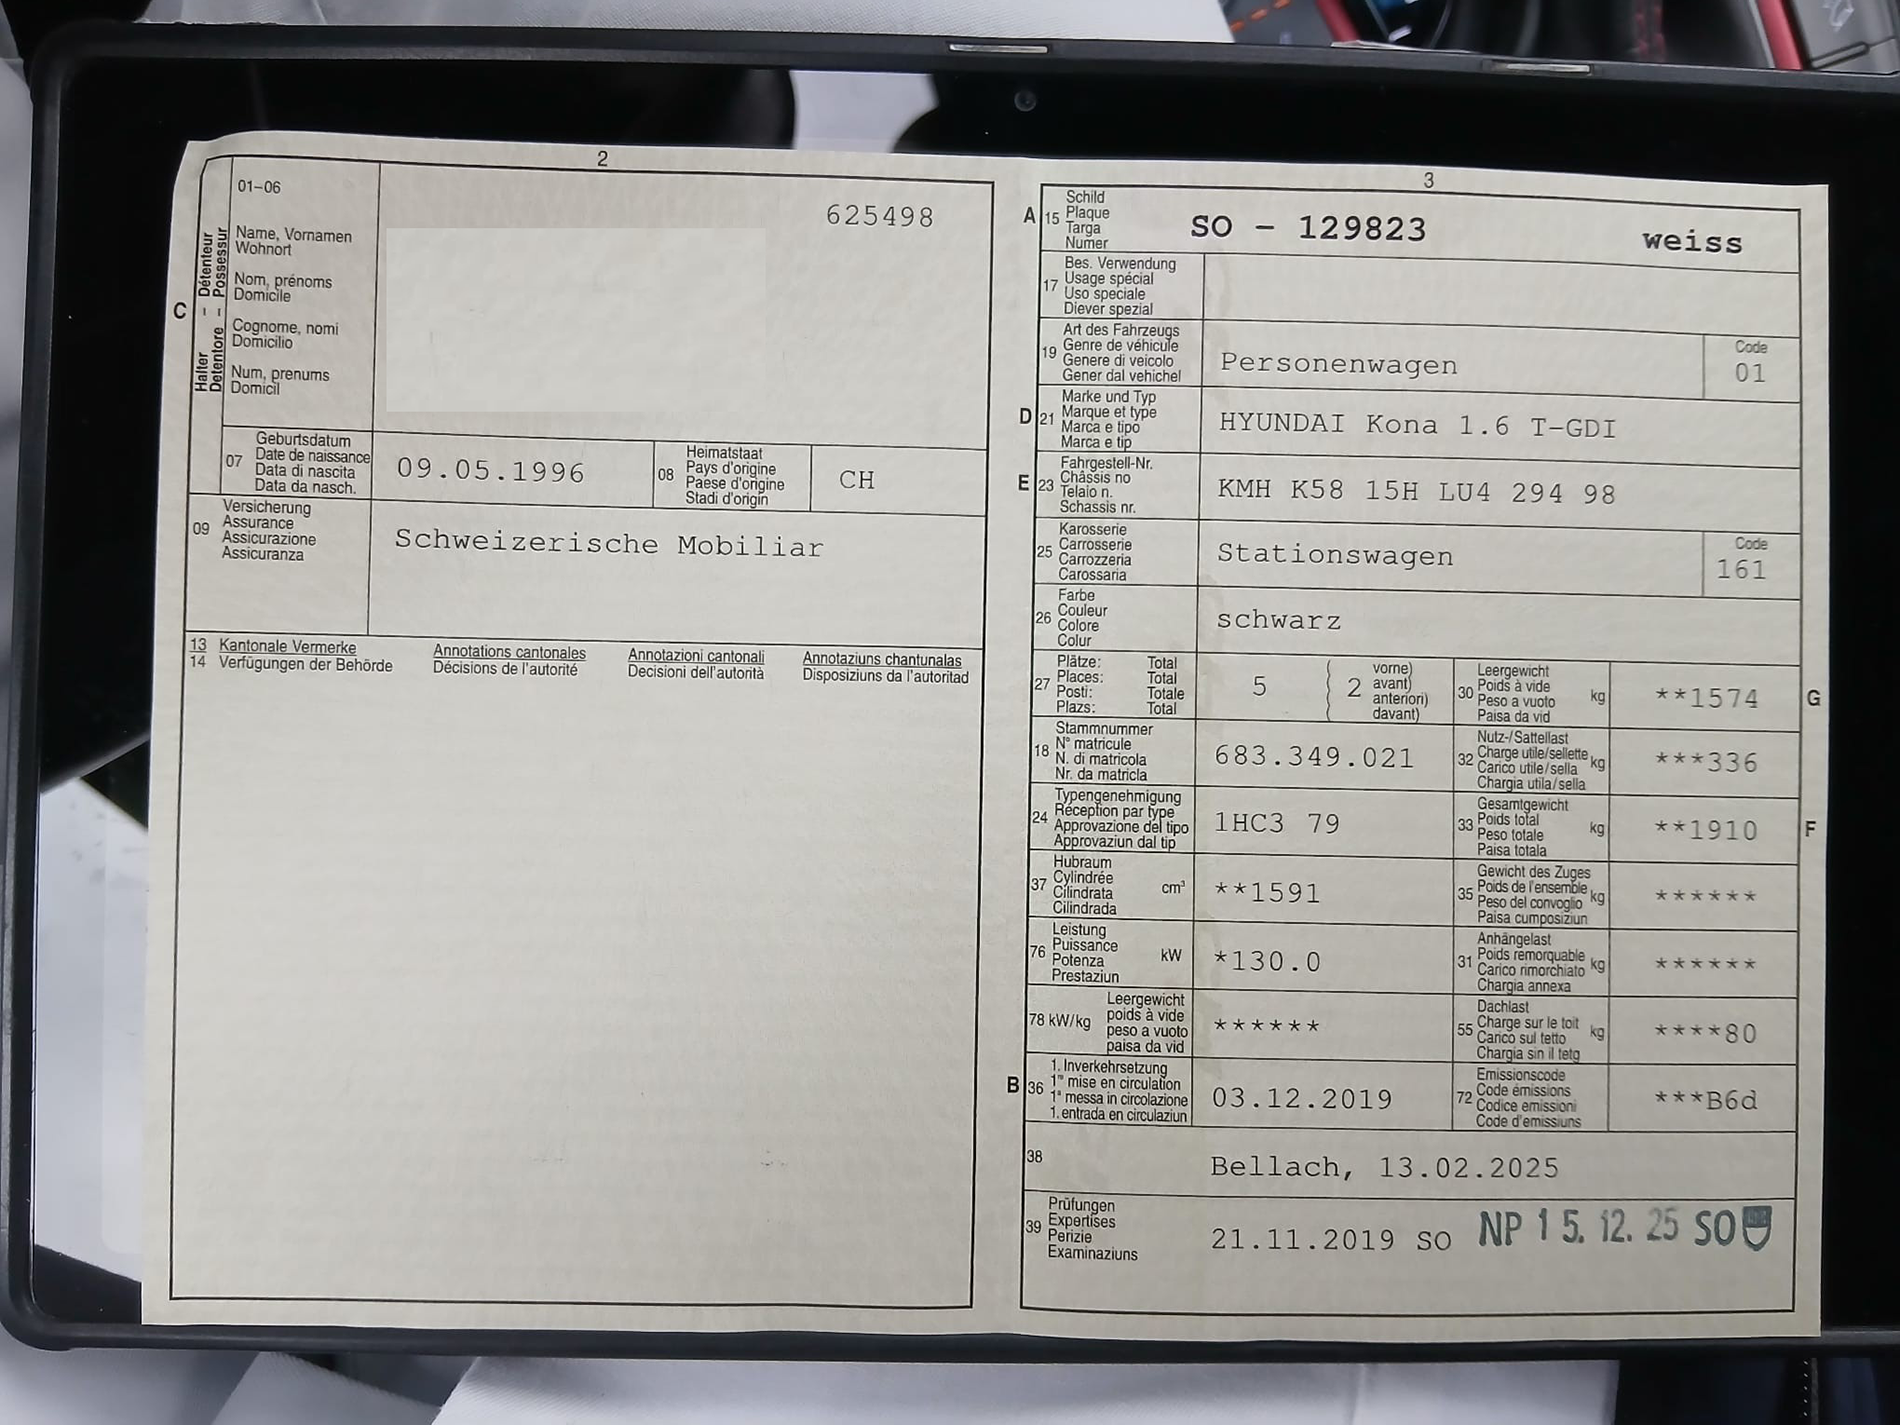 2
01-06
625498
Name, Vornamen
Wohnort
Nom, prénoms
Domicile
Cognome, nomi
Domicilio
Num, prenums
Domicil
C
Halter – Détenteur
Detentore – Possessur
07
Geburtsdatum
Date de naissance
Data di nascita
Data da nasch.
09.05.1996
08
Heimatstaat
Pays d'origine
Paese d'origine
Stadi d'origin
CH
09
Versicherung
Assurance
Assicurazione
Assicuranza
Schweizerische Mobiliar
13 Kantonale Vermerke Annotations cantonales Annotazioni cantonali Annotaziuns chantunalas
14 Verfügungen der Behörde Décisions de l'autorité Decisioni dell'autorità Disposiziuns da l'autoritad
3
A 15
Schild
Plaque
Targa
Numer
SO - 129823 weiss
17
Bes. Verwendung
Usage spécial
Uso speciale
Diever spezial
19
Art des Fahrzeugs
Genre de véhicule
Genere di veicolo
Gener dal vehichel
Personenwagen
Code
01
D 21
Marke und Typ
Marque et type
Marca e tipo
Marca e tip
HYUNDAI Kona 1.6 T-GDI
E 23
Fahrgestell-Nr.
Châssis no
Telaio n.
Schassis nr.
KMH K58 15H LU4 294 98
25
Karosserie
Carrosserie
Carozzeria
Carossaria
Stationswagen
Code
161
26
Farbe
Couleur
Colore
Colur
schwarz
27
Plätze: Total
Places: Total
Posti: Totale
Plazs: Total
5 ( 2 vorne)
avant)
anteriori)
davant)
30
Leergewicht
Poids à vide
Peso a vuoto
Paisa da vid
kg
**1574
G
18
Stammnummer
N° matricule
N. di matricola
Nr. da matricla
683.349.021
32
Nutz-/Sattellast
Charge utile/sellette
Carico utile/sella
Chargia utila/sella
kg
***336
24
Typengenehmigung
Réception par type
Approvazione del tipo
Approvaziun dal tip
1HC3 79
33
Gesamtgewicht
Poids total
Peso totale
Paisa totala
kg
**1910
F
37
Hubraum
Cylindrée
Cilindrata
Cilindrada
cm³
**1591
35
Gewicht des Zuges
Poids de l'ensemble
Peso del convoglio
Paisa cumposiziun
kg
******
76
Leistung
Puissance
Potenza
Prestaziun
kW
*130.0
31
Anhängelast
Poids remorquable
Carico rimorchiato
Chargia annexa
kg
******
78 kW/kg
Leergewicht
poids à vide
peso a vuoto
paisa da vid
******
55
Dachlast
Charge sur le toit
Carico sul tetto
Chargia sin il tetg
kg
****80
B 36
1. Inverkehrsetzung
1re mise en circulation
1a messa in circolazione
1. entrada en circulaziun
03.12.2019
72
Emissionscode
Code émissions
Codice emissioni
Code d'emissiuns
***B6d
38
Bellach, 13.02.2025
39
Prüfungen
Expertises
Perizie
Examinaziuns
21.11.2019 SO NP 15. 12. 25 SO